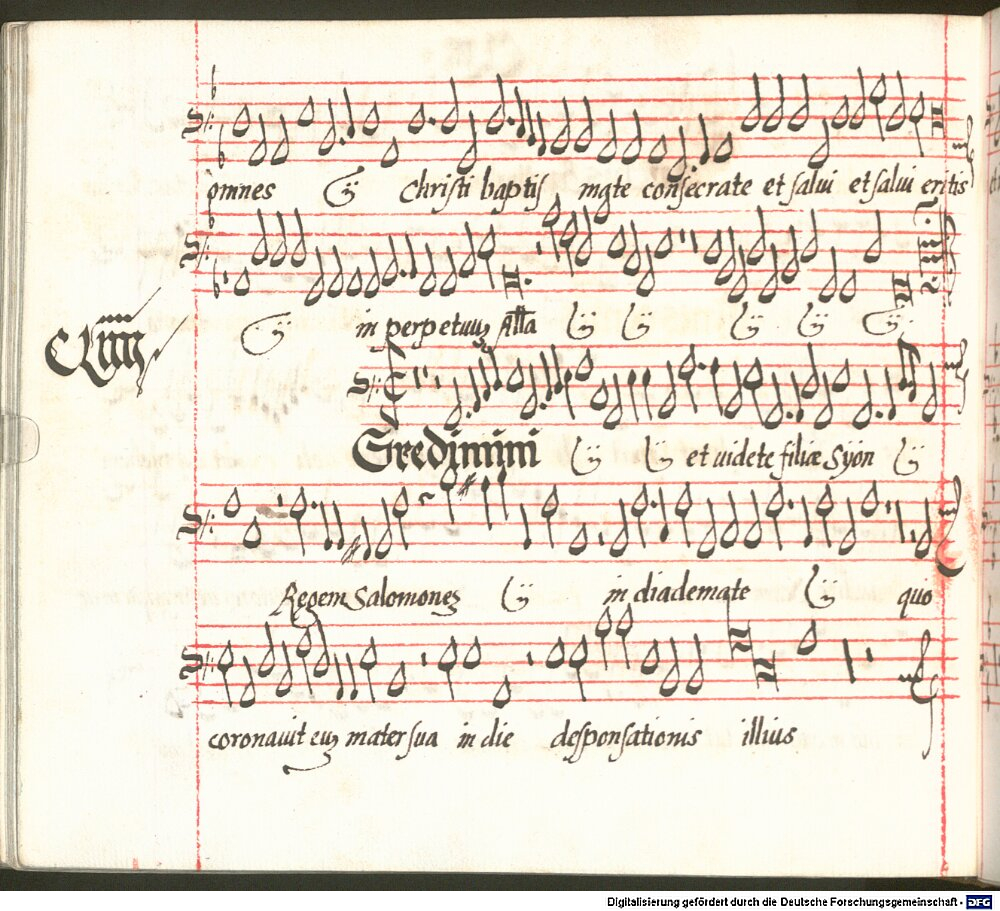 omnes ij Christi baptis mate consecrate et salui et salui eritis
ij in perpetuuʒ alla ij ij ij ij ij
CLiiii
Egredimini ij ij et videte filiæ Syon ij
Regem Salomoneʒ ij in diademate ij quo
coronauit euʒ mater sua in die desponsationis illius
Digitalisierung gefördert durch die Deutsche Forschungsgemeinschaft - DFG